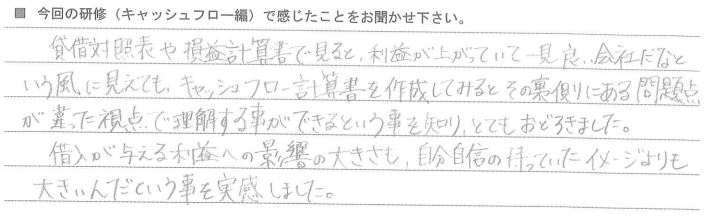 ■ 今回の研修（キャッシュフロー編）で感じたことをお聞かせ下さい。
貸借対照表や損益計算書で見ると、利益が上がっていて一見良い会社だなと
いう風に見えても、キャッシュフロー計算書を作成してみるとその裏側にある問題点
が違った視点で理解する事ができるという事を知り、とてもおどろきました。
借入が与える利益への影響の大きさも、自分自信の持っていたイメージよりも
大きいんだという事を実感しました。